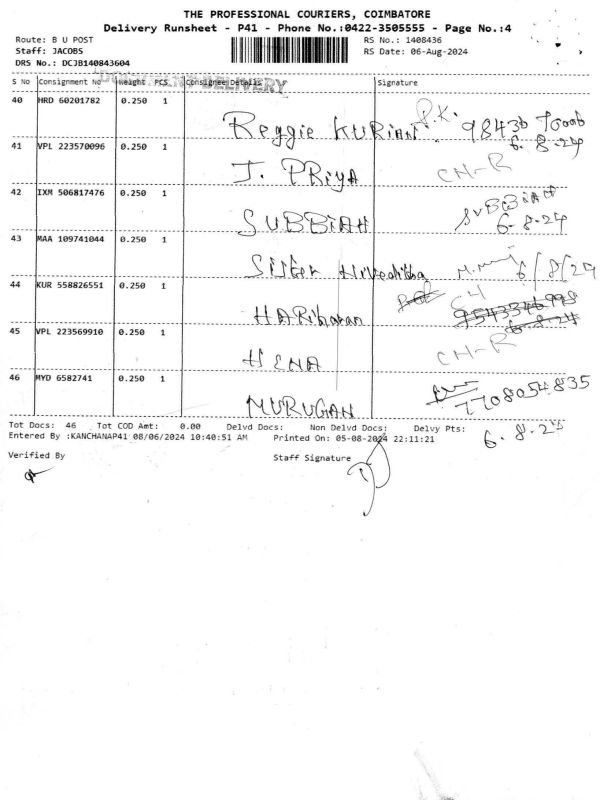 THE PROFESSIONAL COURIERS, COIMBATORE
Delivery Runsheet - P41 - Phone No.:0422-3505555 - Page No.:4
Route: B U POST
RS No.: 1408436
Staff: JACOBS
RS Date: 06-Aug-2024
DRS No.: DCJB140843604
DOCUMENT DELIVERY
S No Consignment No Weight PCS Consignee Details Signature
40 HRD 60201782 0.250 1 Reggie KURIAN R.K. 98430
6-8-24
41 VPL 223570096 0.250 1 J. PRiyA CH-R
42 IXM 506817476 0.250 1 SUBBiAH SUBBiAH
6-8-24
43 MAA 109741044 0.250 1 Sister 6/8/24
44 KUR 558826551 0.250 1 HARiharan CH
6-8-24
45 VPL 223569910 0.250 1 HENA CH-R
46 MYD 6582741 0.250 1 MURUGAN 7708054835
Tot Docs: 46 Tot COD Amt: 0.00 Delvd Docs: Non Delvd Docs: Delvy Pts:
6-8-24
Entered By :KANCHANAP41 08/06/2024 10:40:51 AM Printed On: 05-08-2024 22:11:21
Verified By
Staff Signature